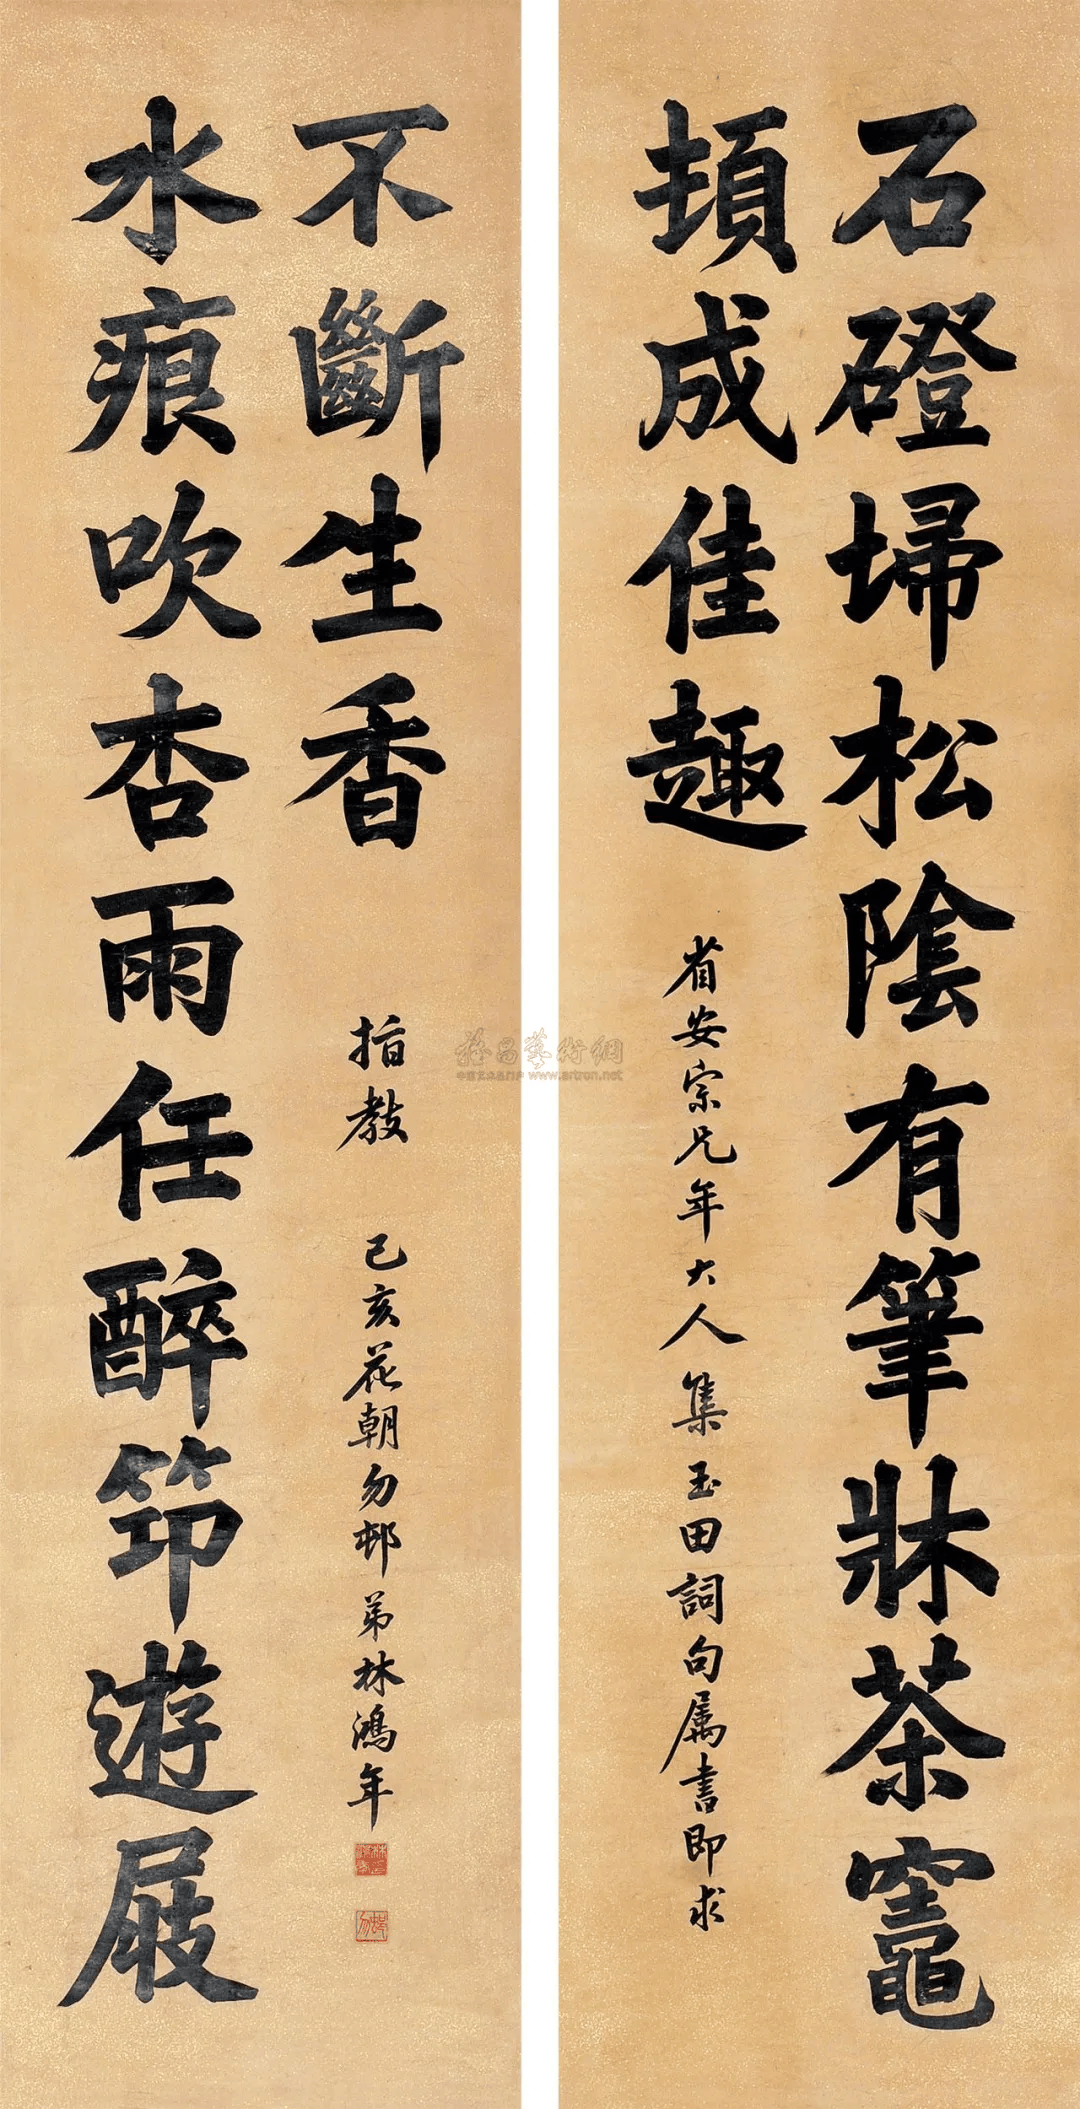 石磴埽松陰有筆牀茶竈
頓成佳趣
省安宗兄年大人集玉田詞句属書即求
水痕吹杏雨任醉筇遊屐
不斷生香
指教
己亥花朝勿邨弟林鴻年
雅昌藝術網
中国艺术品门户 www.artron.net